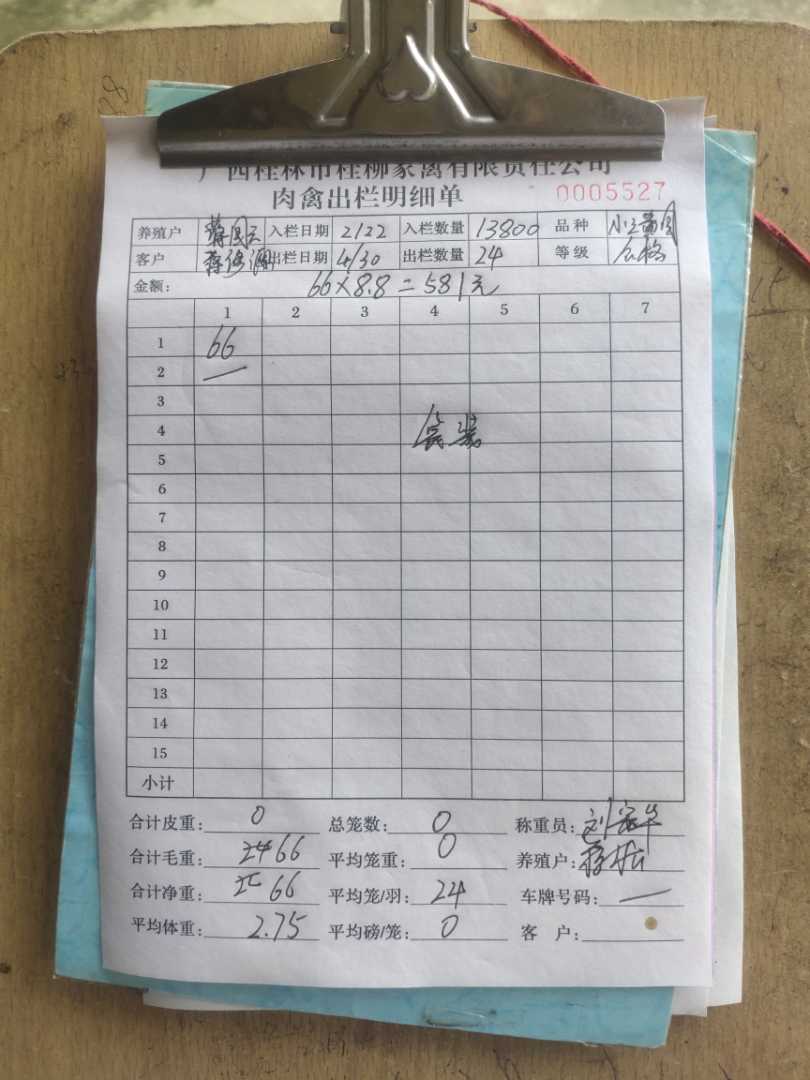 广西桂林市桂柳家禽有限责任公司
肉禽出栏明细单 0005527
养殖户 入栏日期 2/22 入栏数量 13800 品种
客户 出栏日期 4/30 出栏数量 24 等级 合格
金额: 66×8.8=581元
1 2 3 4 5 6 7
1 66
2 —
3
4
5
6
7
8
9
10
11
12
13
14
15
小计
合计皮重: 0 总笼数: 0 称重员:
合计毛重: 66 平均笼重: 0 养殖户:
合计净重: 66 平均笼/羽: 24 车牌号码: —
平均体重: 2.75 平均磅/笼: 0 客户: